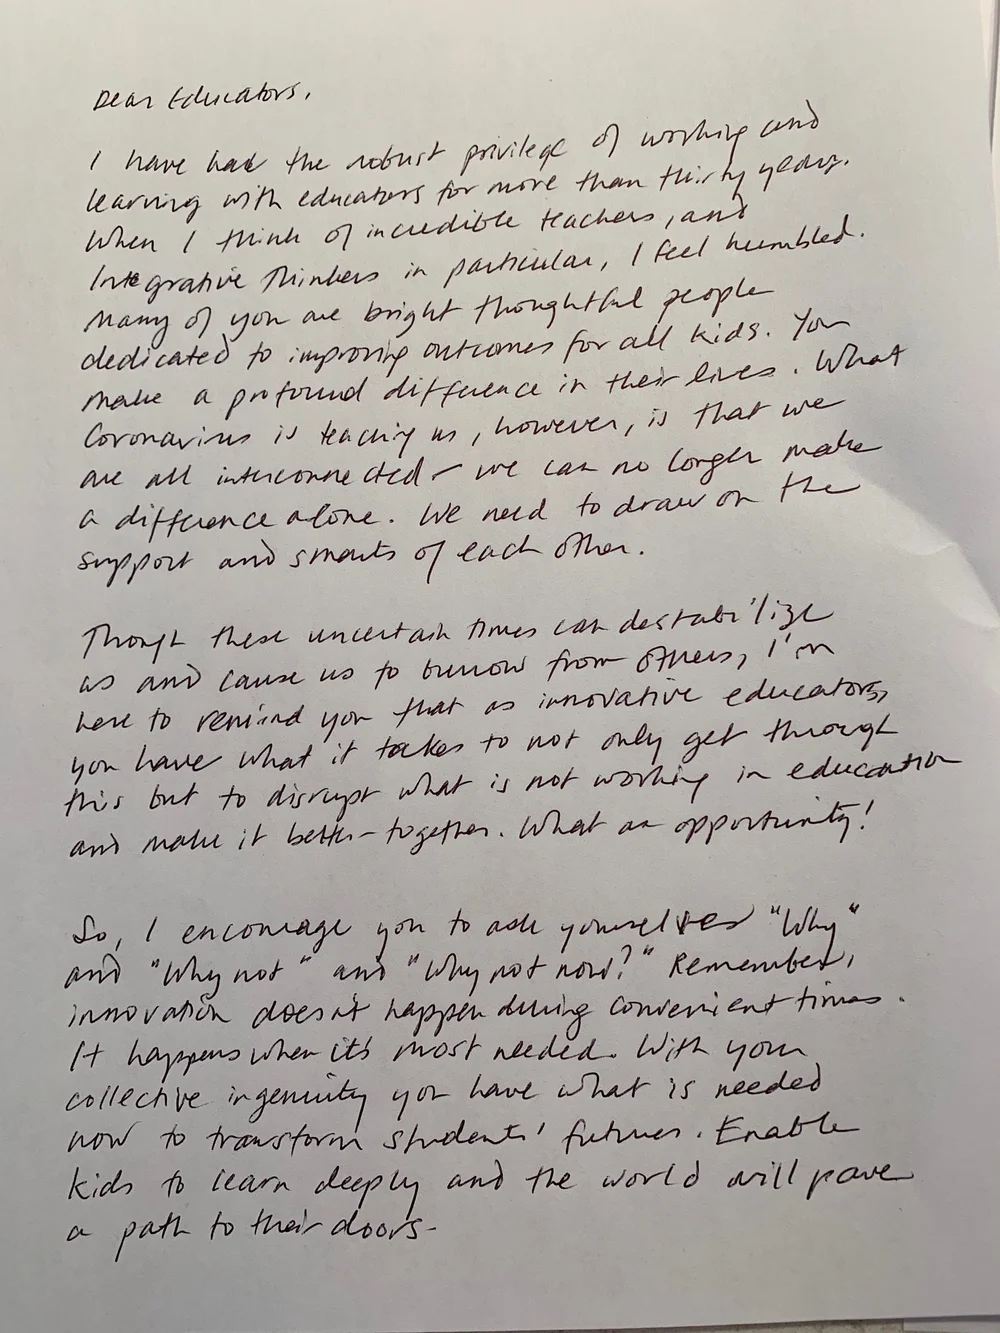 Dear Educators,
I have had the robust privilege of working and
learning with educators for more than thirty years.
When I think of incredible teachers, and
Integrative Thinkers in particular, I feel humbled.
Many of you are bright thoughtful people
dedicated to improving outcomes for all kids. You
make a profound difference in their lives. What
Coronavirus is teaching us, however, is that we
are all interconnected - we can no longer make
a difference alone. We need to draw on the
support and smarts of each other.
Though these uncertain times can destabilize
us and cause us to burrow from others, I'm
here to remind you that as innovative educators,
you have what it takes to not only get through
this but to disrupt what is not working in education
and make it better - together. What an opportunity!
So, I encourage you to ask yourselves "Why"
and "Why not" and "Why not now?" Remember,
innovation doesn't happen during convenient times.
It happens when it's most needed. With your
collective ingenuity you have what is needed
now to transform students' futures. Enable
kids to learn deeply and the world will pave
a path to their doors-